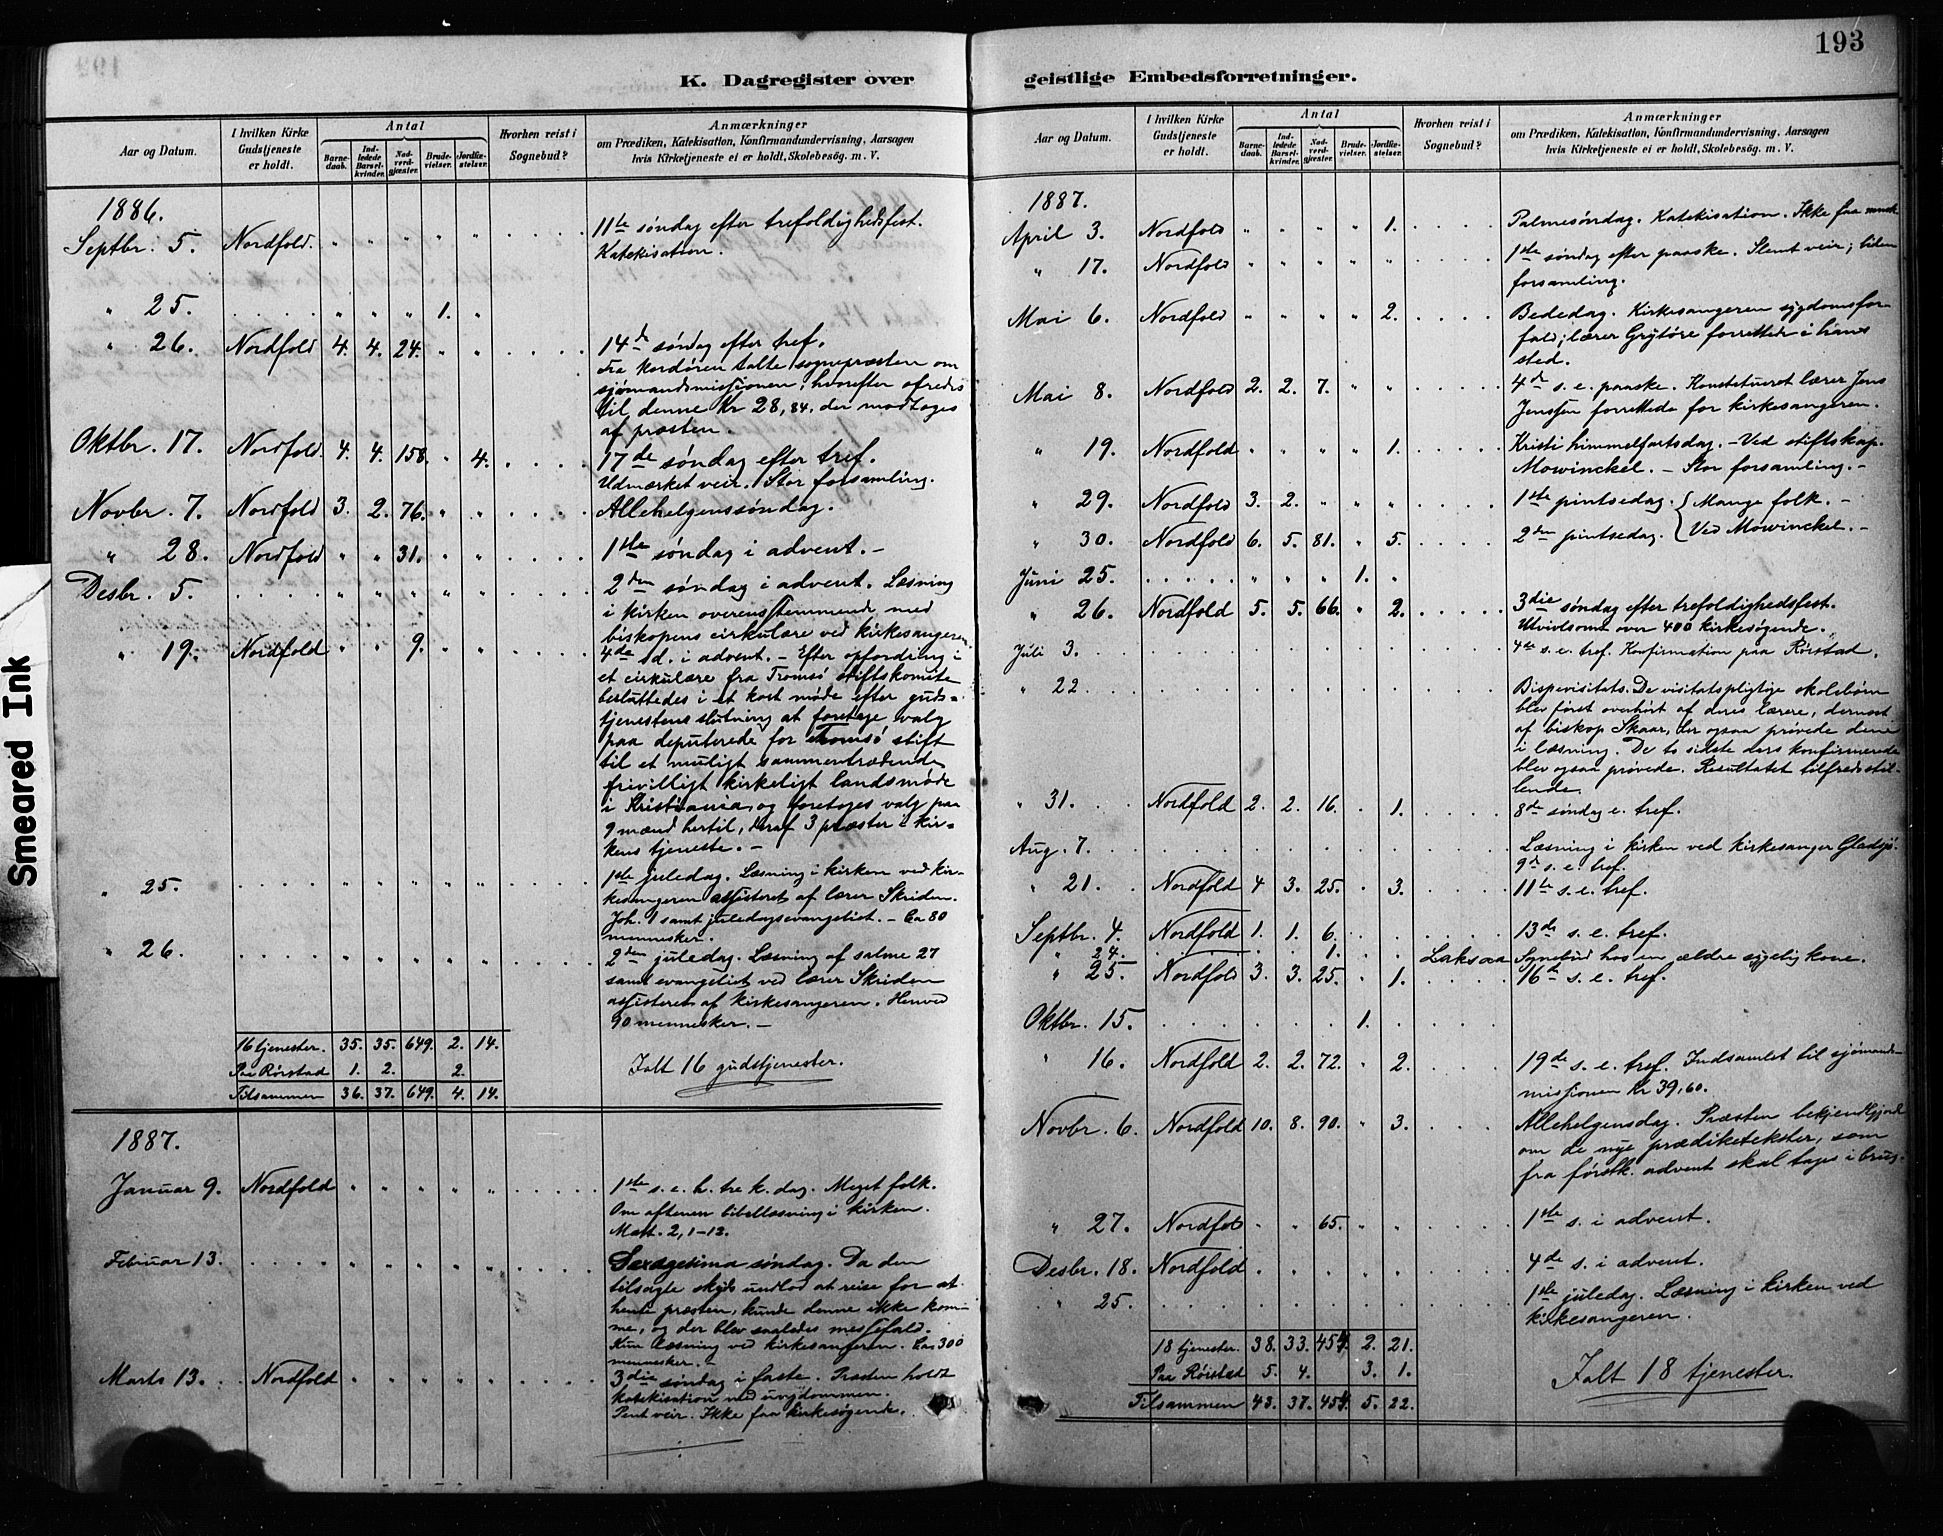 193
K. Dagregister over
Aar og Datum. I hvilken Kirke Gudstjeneste er holdt. Antal Barnedaab. Indledede Barselkvinder. Nadverdgjæster. Brudevielser. Jordfæstelser. Hvorhen reist i Sognebud? Anmærkninger om Prædiken, Katekisation, Konfirmandundervisning, Aarsagen hvis Kirketjeneste ei er holdt, Skolebesøg. m. V.
1886.
Septbr. 5. Nordfold. " " " " " 11te søndag efter trefoldighedsfest.
Katekisation.
" 25. " " " 1. "
" 26. Nordfold 4. 4. 24. " " 14de søndag efter tref.
Fra kordøren talte sognepræsten om
sjømandsmissionen, hvorefter ofredes
til denne Kr 28,84, der modtoges
af præsten.
Oktbr. 17. Nordfold. 4. 4. 158. " 4. 17de søndag efter tref.
Udmærket veir. Stor forsamling.
Novbr. 7. Nordfold 3. 2. 76. " " Allehelgenssøndag.
" 28. Nordfold " " 31. " " 1ste søndag i advent. –
Desbr. 5. " " " " " 2den søndag i advent. Læsning
i kirken overensstemmende med
biskopens cirkulære ved kirkesangeren
" 19. Nordfold " " 9. " " 4de sd. i advent. – Efter opfordring i
et cirkulære fra Tromsø stiftskomite
besluttedes i et kort møde efter guds=
tjenestens slutning at foretage valg
paa deputerede for Tromsø stift
til et muligt sammentrædende
frivilligt kirkeligt landsmøde
i Kristiania, og foretoges valg paa
9 mænd hertil, deraf 3 præster i kir=
kens tjeneste. –
" 25. " " " " " 1ste juledag. Læsning i kirken ved kir-
kesangeren assisteret af lærer Skriden.
Joh. 1 samt juledagsevangeliet. – Ca 80
mennesker.
" 26. 2den juledag. Læsning af salme 27
samt evangeliet ved lærer Skriden
assisteret af kirkesangeren. Henved
90 mennesker. –
16 tjenester. 35. 35. 649. 2. 14.
Paa Rørstad 1. 2. 2. Ialt 16 gudstjenester.
Tilsammen 36. 37. 649. 4. 14.
1887.
Januar 9. Nordfold " " " " " 1ste s. e. h. tre k. dag. Meget folk.
Om aftenen bibellæsning i kirken.
Matt. 2, 1–12.
Februar 13. " " " " " Sexagesima søndag. Da den
tilsagte skyds undlod at reise for at
hente præsten, kunde denne ikke kom-
me, og der blev saaledes messefald.
Kun læsning ved kirkesangeren. Ca 300
mennesker. –
Marts 13. Nordfold " " " " " 3die søndag i faste. Præsten holdt
katekisation med ungdommen.
Pent veir. Ikke faa kirkesøgende.
geistlige Embedsforretninger.
Aar og Datum. I hvilken Kirke Gudstjeneste er holdt. Antal Barnedaab. Indledede Barselkvinder. Nadverdgjæster. Brudevielser. Jordfæstelser. Hvorhen reist i Sognebud? Anmærkninger om Prædiken, Katekisation, Konfirmandundervisning, Aarsagen hvis Kirketjeneste ei er holdt, Skolebesøg. m. V.
1887.
April 3. Nordfold " " " " 1. Palmesøndag. Katekisation. Ikke faa
" 17. Nordfold " " " " " 1ste søndag efter paaske. Slemt veir; liden
forsamling.
Mai 6. Nordfold " " " " 2. Bededag. Kirkesangeren sygdomsfor-
fald; lærer Grytøre forrettede i hans
sted.
Mai 8. Nordfold 2. 2. 7. " " 4de s. e. paaske. Konstitueret lærer Jens
Jenssen forrettede for kirkesangeren.
" 19. Nordfold " " " " 1. Kristi himmelfartsdag. – Ved stiftskap.
Mowinckel. – Stor forsamling. –
" 29. Nordfold 3. 2. " " " 1ste pintsedag. { Mange folk. –
" 30. Nordfold 6. 5. 81. " 5. 2den pintsedag. { Ved Mowinckel. –
Juni 25. " " " 1. "
" 26. Nordfold 5. 5. 66. " 2. 3die søndag efter trefoldighedsfest.
Utvivlsomt over 400 kirkesøgende.
Juli 3. 4de s. e. tref. Konfirmation paa Rørstad.
" 22. Bispevisitats. De visitatspligtige skolebørn
blev først overhørt af deres lærere, dernæst
af biskop Skaar, der ogsaa prøvede dem
i læsning. De to sidste aars konfirmerede
blev ogsaa prøvede. Resultatet tilfredsstil-
lende.
" 31. Nordfold 2. 2. 16. " 1. 8de søndag e. tref.
Aug. 7. Læsning i kirken ved kirkesanger Gladsjø.
9de s. e. tref.
" 21. Nordfold 4 3. 25. " 3. 11te s. e. tref.
Septbr. 4. Nordfold 1. 1. 6. 13de s. e. tref.
" 24. 1. Laksaa Sognebud hos en ældre sygelig kone.
" 25. Nordfold 3. 3. 25. " 1. 16de s. e. tref.
Oktbr. 15. 1.
" 16. Nordfold 2. 2. 72. " 2. 19de s. e. tref. Indsamlet til sjømands-
missionen Kr 39,60.
Novbr. 6. Nordfold 10. 8. 90. " 3. Allehelgensdag. Præsten bekjendtgjorde
om de nye prædiketekster, som
fra førstk. advent skal tages i brug.
" 27. Nordfold " " 65. " " 1ste s. i advent.
Desbr. 18. Nordfold 4de s. i advent.
" 25. 1ste juledag. Læsning i kirken ved
kirkesangeren.
18 tjenester. 38. 33. 454. 2. 21.
Paa Rørstad 5. 4. 3. 1. Ialt 18 tjenester.
Tilsammen 43. 37. 454. 5. 22.
Smeared Ink